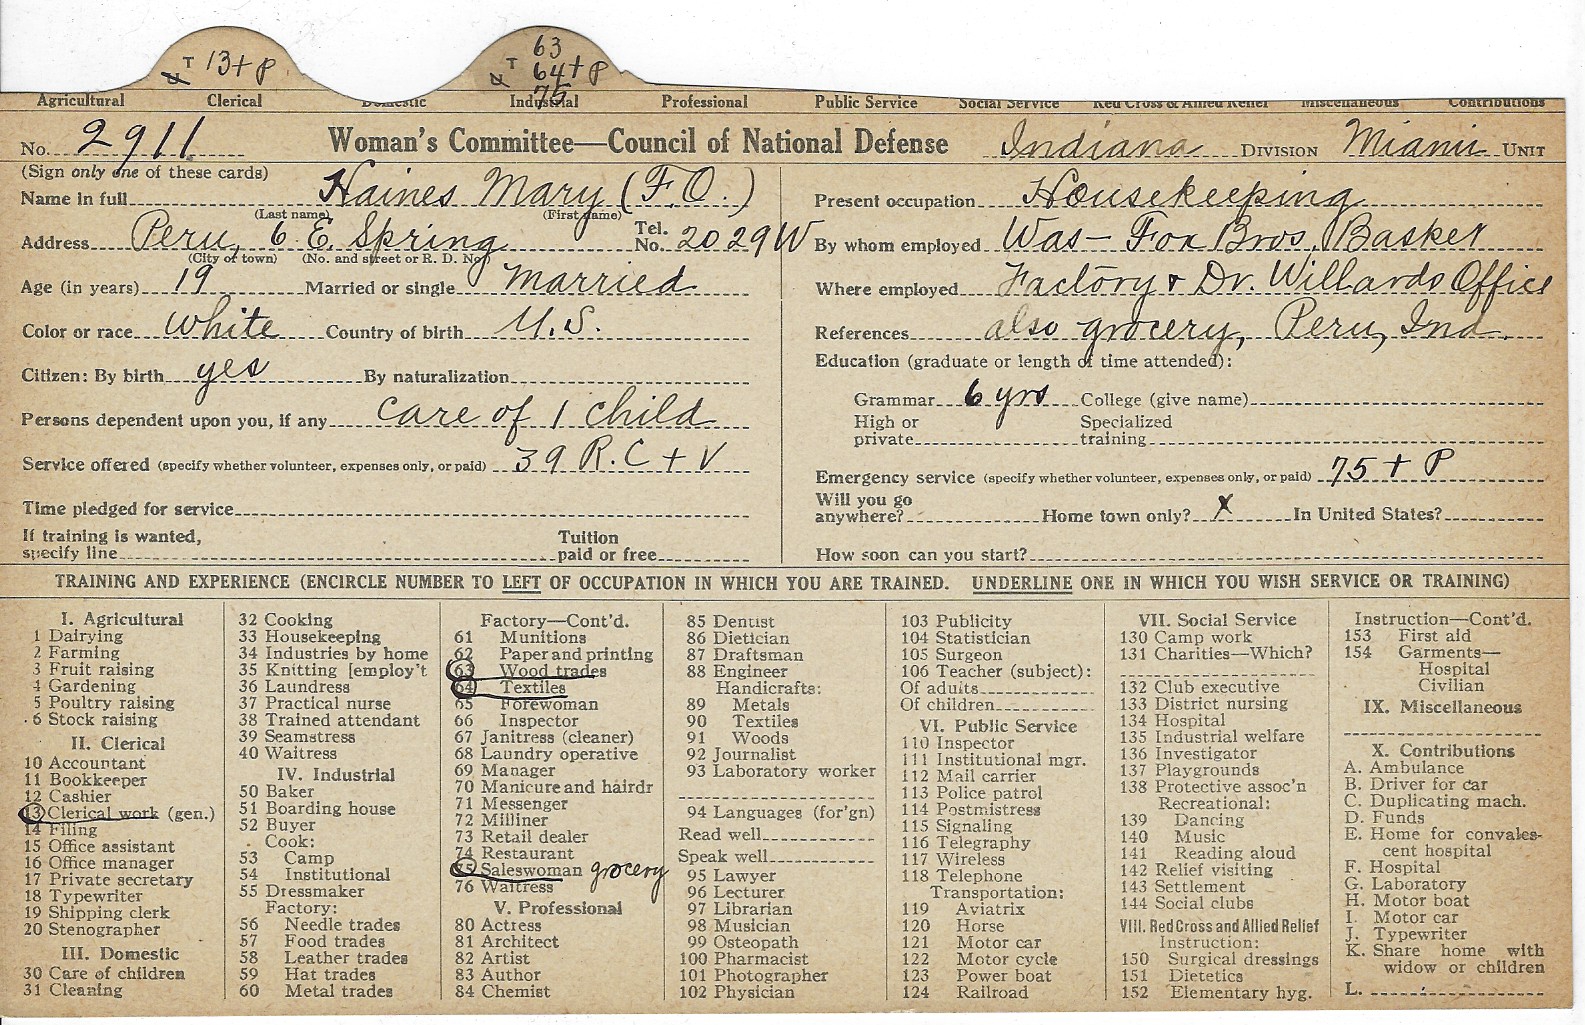 T 13 + P
T 63
64 + P
75
Agricultural Clerical Domestic Industrial Professional Public Service Social Service Red Cross & Allied Relief Miscellaneous Contributions
No. 2911 Woman's Committee—Council of National Defense Indiana DIVISION Miami UNIT
(Sign only one of these cards)
Name in full Haines Mary (F.O.)
(Last name) (First name)
Address Peru, 6 E. Spring Tel. No. 2029W
(City or town) (No. and street or R. D. No.)
Age (in years) 19 Married or single married
Color or race white Country of birth U.S.
Citizen: By birth yes By naturalization
Persons dependent upon you, if any care of 1 child
Service offered (specify whether volunteer, expenses only, or paid) 39 R.C + V
Time pledged for service
If training is wanted, specify line Tuition paid or free
Present occupation Housekeeping
By whom employed Was - Fox Bros. Basket
Where employed Factory & Dr. Willards Office
References also grocery, Peru, Ind.
Education (graduate or length of time attended):
Grammar 6 yrs College (give name)
High or private Specialized training
Emergency service (specify whether volunteer, expenses only, or paid) 75 + P
Will you go anywhere? Home town only? X In United States?
How soon can you start?
TRAINING AND EXPERIENCE (ENCIRCLE NUMBER TO LEFT OF OCCUPATION IN WHICH YOU ARE TRAINED. UNDERLINE ONE IN WHICH YOU WISH SERVICE OR TRAINING)
I. Agricultural
1 Dairying
2 Farming
3 Fruit raising
4 Gardening
5 Poultry raising
6 Stock raising
II. Clerical
10 Accountant
11 Bookkeeper
12 Cashier
13 Clerical work (gen.)
14 Filing
15 Office assistant
16 Office manager
17 Private secretary
18 Typewriter
19 Shipping clerk
20 Stenographer
III. Domestic
30 Care of children
31 Cleaning
32 Cooking
33 Housekeeping
34 Industries by home
35 Knitting [employ't
36 Laundress
37 Practical nurse
38 Trained attendant
39 Seamstress
40 Waitress
IV. Industrial
50 Baker
51 Boarding house
52 Buyer
Cook:
53 Camp
54 Institutional
55 Dressmaker
Factory:
56 Needle trades
57 Food trades
58 Leather trades
59 Hat trades
60 Metal trades
Factory—Cont'd.
61 Munitions
62 Paper and printing
63 Wood trades
64 Textiles
65 Forewoman
66 Inspector
67 Janitress (cleaner)
68 Laundry operative
69 Manager
70 Manicure and hairdr
71 Messenger
72 Milliner
73 Retail dealer
74 Restaurant
75 Saleswoman grocery
76 Waitress
V. Professional
80 Actress
81 Architect
82 Artist
83 Author
84 Chemist
85 Dentist
86 Dietician
87 Draftsman
88 Engineer
Handicrafts:
89 Metals
90 Textiles
91 Woods
92 Journalist
93 Laboratory worker
94 Languages (for'gn)
Read well
Speak well
95 Lawyer
96 Lecturer
97 Librarian
98 Musician
99 Osteopath
100 Pharmacist
101 Photographer
102 Physician
103 Publicity
104 Statistician
105 Surgeon
106 Teacher (subject):
Of adults
Of children
VI. Public Service
110 Inspector
111 Institutional mgr.
112 Mail carrier
113 Police patrol
114 Postmistress
115 Signaling
116 Telegraphy
117 Wireless
118 Telephone
Transportation:
119 Aviatrix
120 Horse
121 Motor car
122 Motor cycle
123 Power boat
124 Railroad
VII. Social Service
130 Camp work
131 Charities—Which?
132 Club executive
133 District nursing
134 Hospital
135 Industrial welfare
136 Investigator
137 Playgrounds
138 Protective assoc'n
Recreational:
139 Dancing
140 Music
141 Reading aloud
142 Relief visiting
143 Settlement
144 Social clubs
VIII. Red Cross and Allied Relief
Instruction:
150 Surgical dressings
151 Dietetics
152 Elementary hyg.
Instruction—Cont'd.
153 First aid
154 Garments—
Hospital
Civilian
IX. Miscellaneous
X. Contributions
A. Ambulance
B. Driver for car
C. Duplicating mach.
D. Funds
E. Home for convales-
cent hospital
F. Hospital
G. Laboratory
H. Motor boat
I. Motor car
J. Typewriter
K. Share home with
widow or children
L.